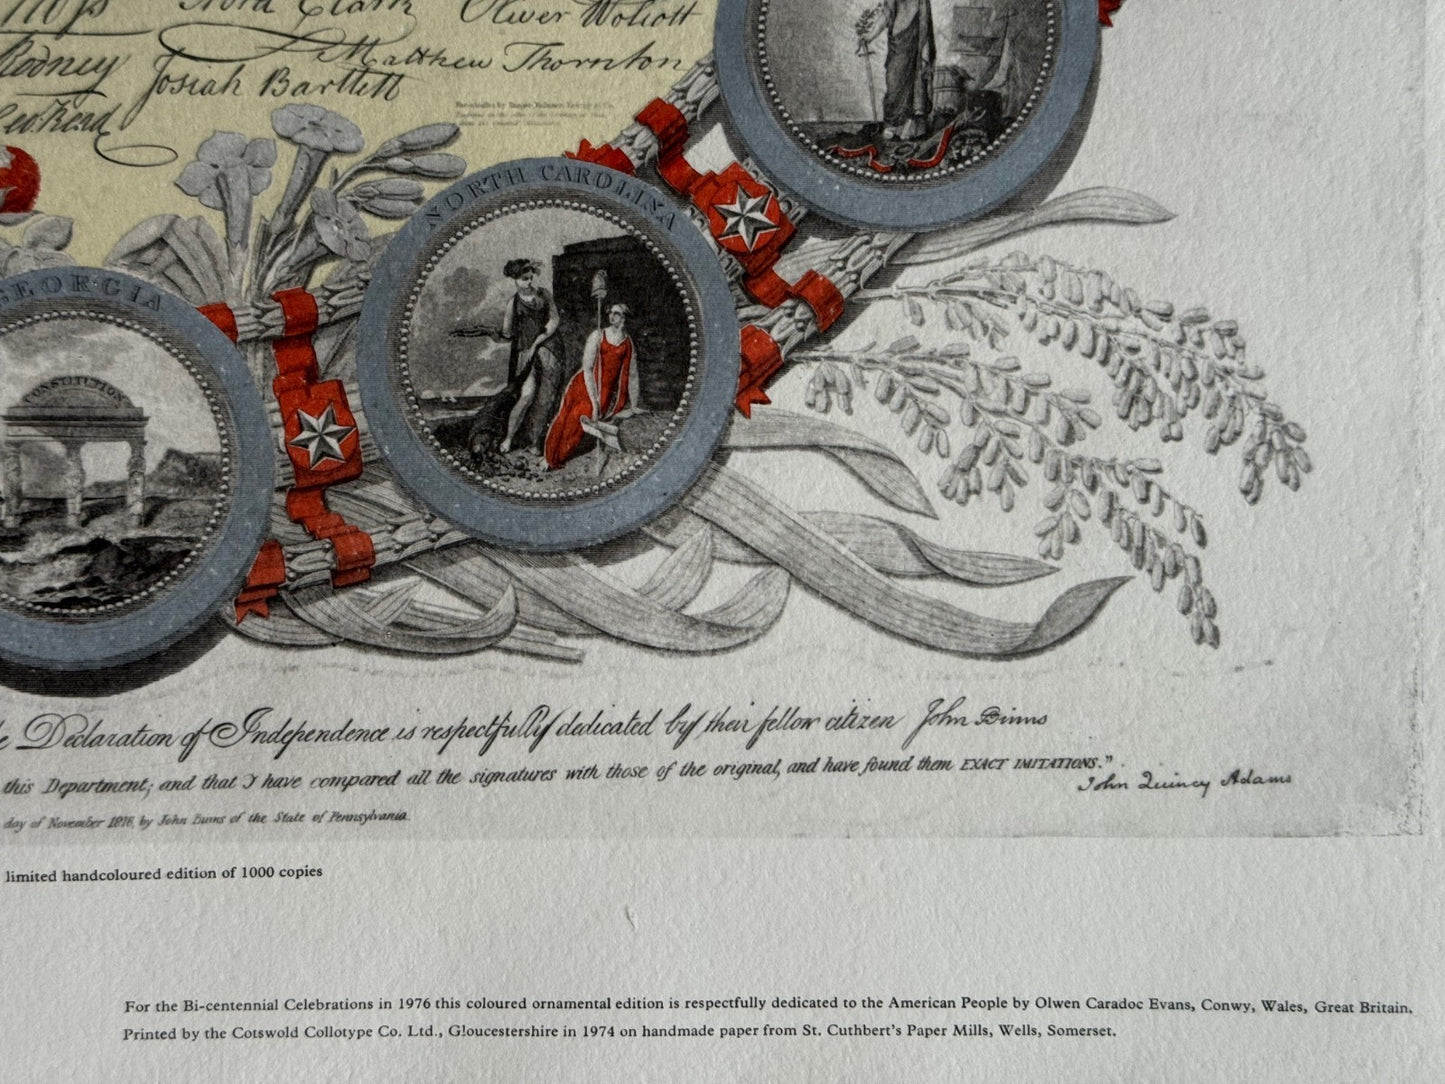 Oliver Wolcott
Rodney
Josiah Bartlett
Matthew Thornton
Geo Read
NORTH CAROLINA
GEORGIA
CONSTITUTION
Declaration of Independence is respectfully dedicated by their fellow citizen John Binns
this Department; and that I have compared all the signatures with those of the original, and have found them EXACT IMITATIONS."
John Quincy Adams
day of November 1816, by John Binns of the State of Pennsylvania.
limited handcoloured edition of 1000 copies
For the Bi-centennial Celebrations in 1976 this coloured ornamental edition is respectfully dedicated to the American People by Olwen Caradoc Evans, Conwy, Wales, Great Britain.
Printed by the Cotswold Collotype Co. Ltd., Gloucestershire in 1974 on handmade paper from St. Cuthbert's Paper Mills, Wells, Somerset.